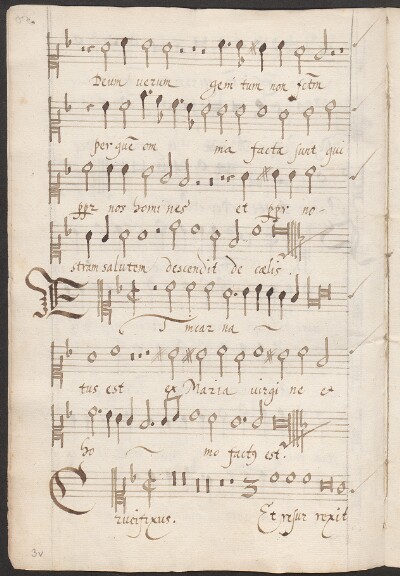 Deum uerum geni tum non fctm
per que om nia facta sunt qui
ppr nos homi nes et ppr no-
stram salutem descendit de cœlis.
E T incar na
tus est ex Maria uirgi ne et
ho mo factq est.
C rucifixus. Et resur rexit
3v